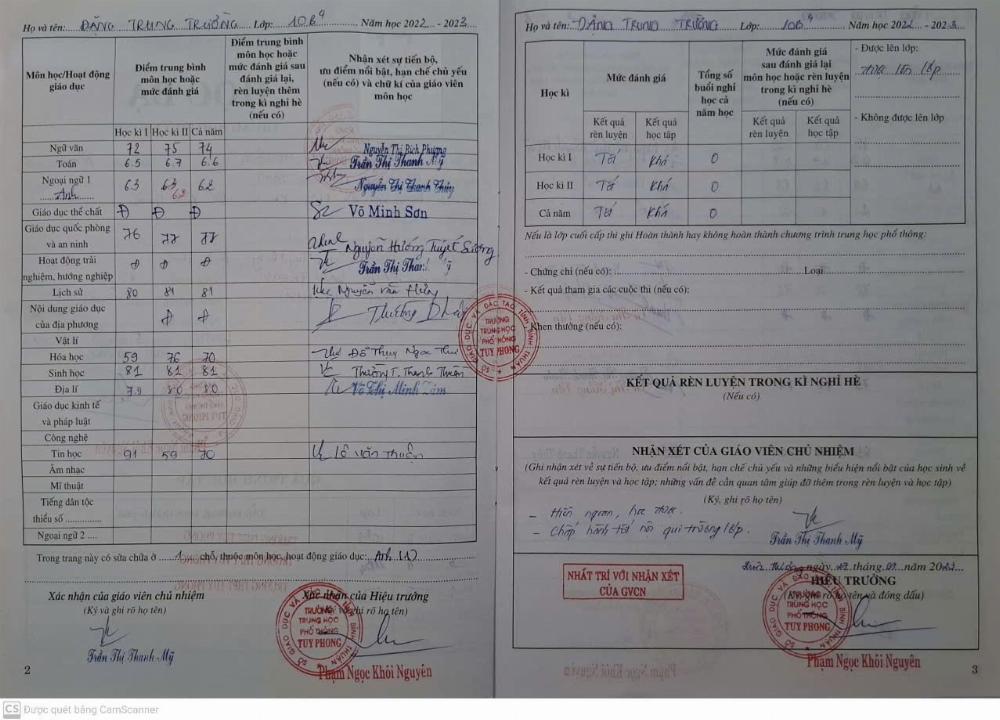 Họ và tên: ĐẶNG TRUNG TRƯỜNG Lớp: 10B9 Năm học 2022 - 2023
Môn học/Hoạt động giáo dục
Điểm trung bình môn học hoặc mức đánh giá
Điểm trung bình môn học hoặc mức đánh giá sau đánh giá lại, rèn luyện thêm trong kì nghỉ hè (nếu có)
Nhận xét sự tiến bộ, ưu điểm nổi bật, hạn chế chủ yếu (nếu có) và chữ kí của giáo viên môn học
Học kì I Học kì II Cả năm
Ngữ văn 72 75 74 Nguyễn Thị Bích Phượng
Toán 6.5 6.7 6.6 Trần Thị Thanh Mỹ
Ngoại ngữ 1 Anh 63 63 62 Nguyễn Thị Thanh Thúy
Giáo dục thể chất Đ Đ Đ Võ Minh Sơn
Giáo dục quốc phòng và an ninh 76 77 77 Nguyễn Hương Tuyết Sương
Hoạt động trải nghiệm, hướng nghiệp Đ Đ Đ Trần Thị Thanh Mỹ
Lịch sử 80 81 81 Nguyễn Văn
Nội dung giáo dục của địa phương Đ Đ
Vật lí
Hóa học 59 76 70 Đỗ Thụy Ngọc Thư
Sinh học 81 81 81
Địa lí 7.9 80 80 Võ Thị Minh Tâm
Giáo dục kinh tế và pháp luật
Công nghệ
Tin học 91 59 70 Lê Văn Thuận
Âm nhạc
Mĩ thuật
Tiếng dân tộc thiểu số
Ngoại ngữ 2
Trong trang này có sửa chữa ở 1 chỗ, thuộc môn học, hoạt động giáo dục: Anh (1)
Xác nhận của giáo viên chủ nhiệm
(Ký và ghi rõ họ tên)
Trần Thị Thanh Mỹ
Xác nhận của Hiệu trưởng
ghi rõ họ tên)
SỞ GIÁO DỤC VÀ ĐÀO TẠO TỈNH BÌNH THUẬN
TRƯỜNG TRUNG HỌC PHỔ THÔNG TUY PHONG
Phạm Ngọc Khôi Nguyên
2
Họ và tên: ĐẶNG TRUNG TRƯỜNG Lớp: 10B9 Năm học 2022 - 2023
Học kì
Mức đánh giá
Tổng số buổi nghỉ học cả năm học
Mức đánh giá sau đánh giá lại môn học hoặc rèn luyện trong kì nghỉ hè (nếu có)
Kết quả rèn luyện Kết quả học tập Kết quả rèn luyện Kết quả học tập
- Được lên lớp:
Được lên lớp
- Không được lên lớp
Học kì I Tốt Khá 0
Học kì II Tốt Khá 0
Cả năm Tốt Khá 0
Nếu là lớp cuối cấp thì ghi Hoàn thành hay không hoàn thành chương trình trung học phổ thông:
- Chứng chỉ (nếu có): Loại
- Kết quả tham gia các cuộc thi (nếu có):
- Khen thưởng (nếu có):
TRƯỜNG TRUNG HỌC PHỔ THÔNG TUY PHONG
KẾT QUẢ RÈN LUYỆN TRONG KÌ NGHỈ HÈ
(Nếu có)
NHẬN XÉT CỦA GIÁO VIÊN CHỦ NHIỆM
(Ghi nhận xét về sự tiến bộ, ưu điểm nổi bật, hạn chế chủ yếu và những biểu hiện nổi bật của học sinh về
kết quả rèn luyện và học tập; những vấn đề cần quan tâm giúp đỡ thêm trong rèn luyện và học tập)
(Ký, ghi rõ họ tên)
- Hiền ngoan, học được.
- Chấp hành tốt nội qui trường lớp.
Trần Thị Thanh Mỹ
NHẤT TRÍ VỚI NHẬN XÉT
CỦA GVCN
ngày tháng năm
HIỆU TRƯỞNG
(Ký, ghi rõ họ tên và đóng dấu)
TRƯỜNG TRUNG HỌC PHỔ THÔNG TUY PHONG
Phạm Ngọc Khôi Nguyên
3
CS Được quét bằng CamScanner